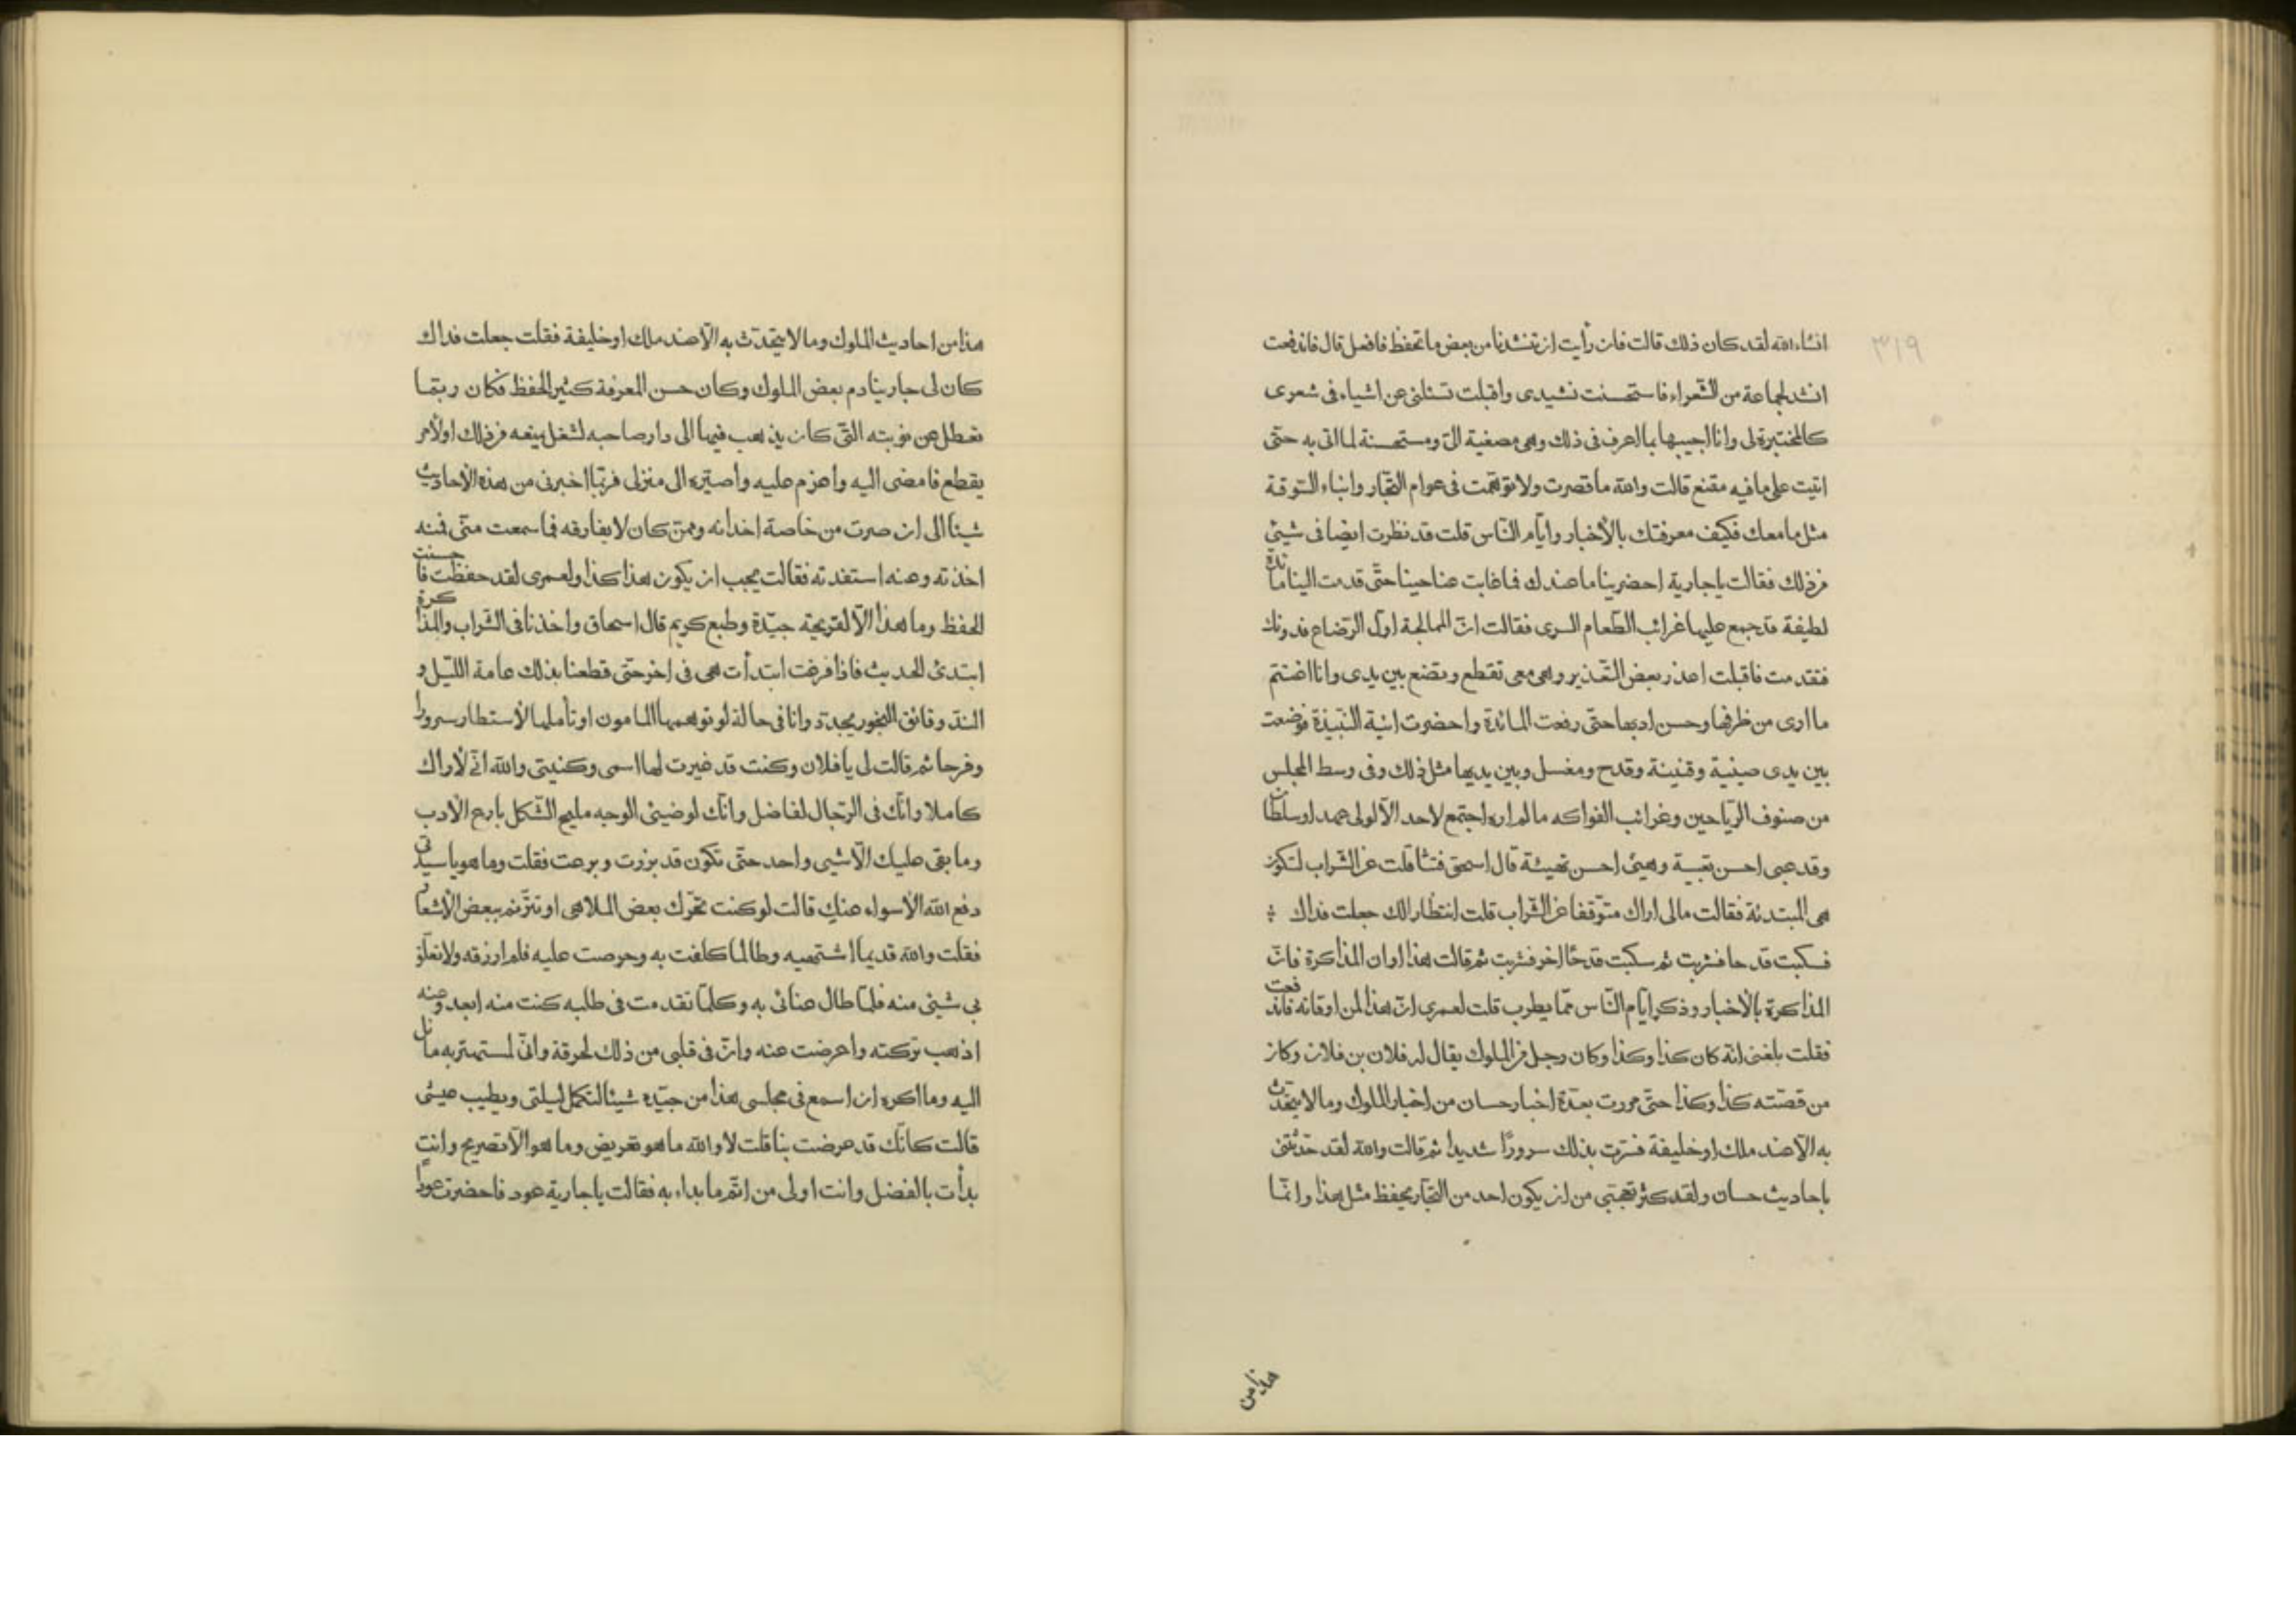 ٣١٩
انشاء الله لقد كان ذلك قالت فان رأيت ان تنشدنا من بعض ما تحفظ فافعل قال فاندفعت
انشد لجماعة من الشّعراء فاستحسنت نشيدى واقبلت تسئلنى عن اشياء فى شعرى
كالمختبرة لى وانا اجيبها بما اعرف فى ذلك وهى مصغية الىّ ومستحسنة لما اتى به حتى
اتيت على ما فيه مقنع قالت والله ما قصرت ولا توهّمت فى عوام التجّار وابناء السّوقة
مثل ما معك فكيف معرفتك بالأخبار وايّام النّاس قلت قد نظرت ايضا فى شيئ
من ذلك فقالت يا جارية احضرينا ما عندك فما غابت عنا حينا حتّى قدمت الينا مائدة
لطيفة قد جمع عليها غرائب الطّعام السرى فقالت انّ الممالحة اوّل الرّضاع فدونك
فتقدمت فاقبلت اعذر بعض التّعذير وهى معى تقطع وتضع بين يدى وانا اغتنم
ما ارى من ظرفها وحسن ادبها حتّى رفعت المائدة واحضرت انية النّبيذة فوضعت
بين يدى صينية وقنينة وقدح ومغسل وبين يديها مثل ذلك وفى وسط المجلس
من صنوف الرّياحين وغرائب الفواكه ما لم اره اجتمع لاحد الاّ لولى عهد او سلطان
وقد عبى احسن تعبية وهيئ احسن تهيئة قال اسحق فتثاقلت عن الشّراب لتكون
هى المبتدئة فقالت مالى اراك متوقّفا عن الشّراب قلت انتظارا لك جعلت فداك
فسكبت قدحا فشربت ثم سكبت قدحا اخر فشربت ثم قالت هذا اوان المذاكرة فانّ
المذاكرة بالأخبار وذكر ايّام النّاس ممّا يطرب قلت لعمرى انّ هذا لمن اوقاته فاندفعت
فقلت بلغنى انّه كان كذا وكذا وكان رجل من الملوك يقال له فلان بن فلان وكان
من قصّته كذا وكذا حتّى مررت بعدّة اخبار حسان من اخبار الملوك وما لا يتحدّث
به الاّ عند ملك او خليفة فسّرت بذلك سرورًا شديدا ثم قالت والله لقد حدّثتنى
باحاديث حسان ولقد كثر تعجّبى من ان يكون احد من التجّار يحفظ مثل هذا وانّما
هذا من
هذا من احاديث الملوك وما لا يتحدّث به الاّ عند ملك او خليفة فقلت جعلت فداك
كان لى جار ينادم بعض الملوك وكان حسن المعرفة كثير الحفظ فكان ربّما
تعطل عن نوبته التّى كان يذهب فيها الى دار صاحبه لشغل يمنعه من ذلك او لأمر
يقطع فامضى اليه واعزم عليه واصيّره الى منزلى فربّما اخبرنى من هذه الأحاديث
شيئا الى ان صرت من خاصة اخدانه وممّن كان لا يفارقه فما سمعت منّى فمنه
اخذته وعنه استفدته فقالت يجب ان يكون هذا كذا ولعمرى لقد حفظت فاحسنت
الحفظ وما هذا الاّ لقريحة جيّدة وطبع كريم قال اسحاق واخذنا فى الشّراب والمذاكرة
ابتدئ الحديث فاذا فرغت ابتدأت هى فى اخر حتّى قطعنا بذلك عامة اللّيل و
النّد وفائق البخور يجدد وانا فى حالة لو توهمها المامون او تأملها لأستطار سرورا
وفرحا ثم قالت لى يا فلان وكنت قد غيرت لها اسمى وكنيتى والله انّى لأراك
كاملا وانّك فى الرّجال لفاضل وانّك لوضيئ الوجه مليح الشّكل بارع الأدب
وما بقى عليك الاّ شيى واحد حتّى تكون قد برزت وبرعت فقلت وما هو يا سيدتى
دفع الله الأسواء عنكِ قالت لو كنت تحرّك بعض الملاهى او تترنّم ببعض الأشعار
فقلت والله قديما اشتهيه وطالما كلفت به وحرصت عليه فلم ارزقه ولا تعلّق
بى شيئ منه فلمّا طال عنائى به وكلّما تقدمت فى طلبه كنت منه ابعد وعنه
اذهب تركته واعرضت عنه وانّ فى قلبى من ذلك لحرقة وانّى لمستهتر به مائل
اليه وما اكره ان اسمع فى مجلسى هذا من جيّده شيئا لتكمل ليلتى ويطيب عيشى
قالت كانّك قد عرضت بنا قلت لا والله ما هو تعريض وما هو الاّ تصريح وانتِ
بدأت بالفضل وانت اولى من اتّم ما بداء به فقالت يا جارية عود فاحضرت عودا